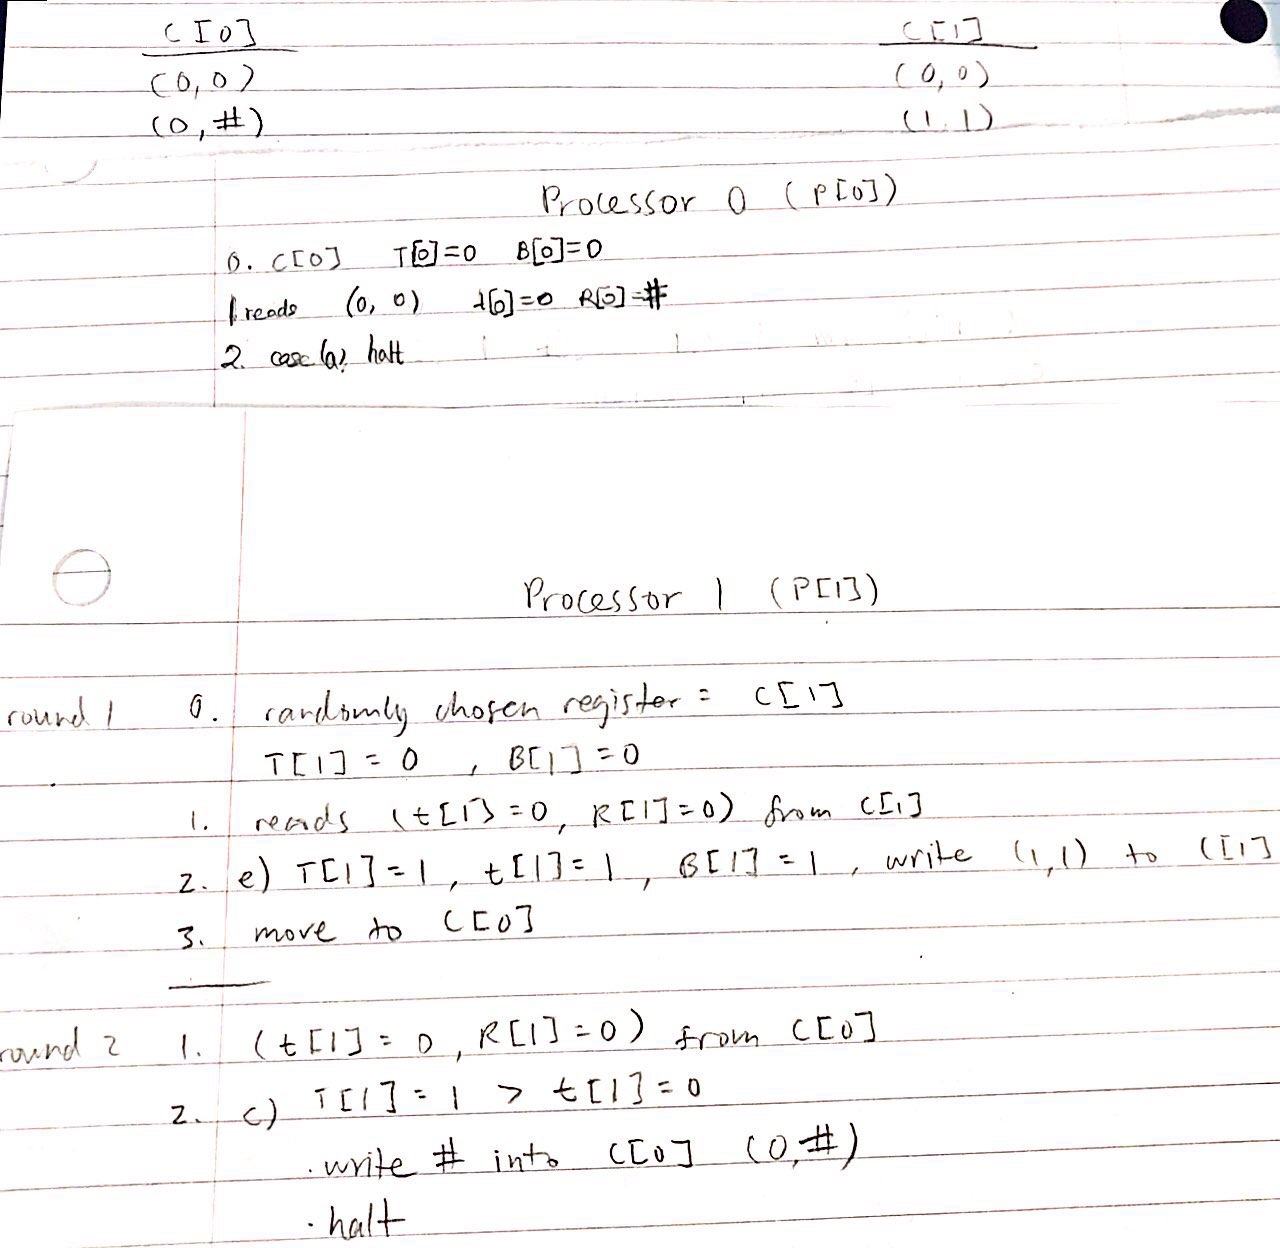 C[0] C[1]
(0,0) (0,0)
(0,#) (1,1)
Processor 0 (P[0])
0. C[0] T[0]=0 B[0]=0
1. reads (0,0) t[0]=0 R[0]=#
2. case (a): halt
Processor 1 (P[1])
round 1 0. randomly chosen register = C[1]
T[1] = 0 , B[1] = 0
1. reads (t[1]=0, R[1]=0) from C[1]
2. e) T[1]=1, t[1]=1, B[1]=1, write (1,1) to C[1]
3. move to C[0]
round 2 1. (t[1]=0, R[1]=0) from C[0]
2. c) T[1]=1 > t[1]=0
· write # into C[0] (0,#)
· halt